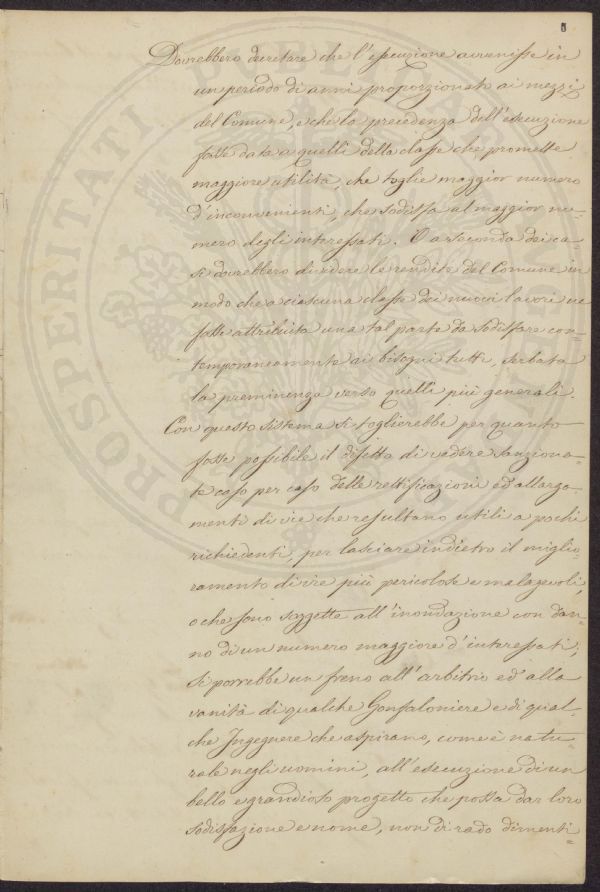 8
Dovrebbero decretare che l'esecuzione avvenisse in
un periodo di anni proporzionato ai mezzi
del Comune, e che la precedenza dell'esecuzione
fosse data a quelli della classe che promette
maggiore utilità, che toglie maggior numero
d'inconvenienti, che sodisfa al maggior nu=
mero degli interessati. O a seconda dei ca=
si dovrebbero dividere le rendite del Comune in
modo che a ciascuna classe dei nuovi lavori ne
fosse attribuita una tal parte da sodisfare con=
temporaneamente ai bisogni tutti, serbata
la preminenza verso quelli più generali.
Con questo sistema si toglierebbe per quanto
fosse possibile il difetto di vedere sanziona=
te caso per caso delle rettificazioni ed allarga=
menti di vie che resultano utili a pochi
richiedenti, per lasciare indietro il miglio=
ramento di vie più pericolose e malagevoli,
o che sono soggette all'inondazione con dan=
no di un numero maggiore d'interessati;
si porrebbe un freno all'arbitrio ed alla
vanità di qualche Gonfaloniere e di qual=
che Ingegnere che aspirano, come è natu=
rale negli uomini, all'esecuzione di un
bello e grandioso progetto che possa dar loro
sodisfazione e nome, non di rado dimenti=
PROSPERITATI PUBLICAE